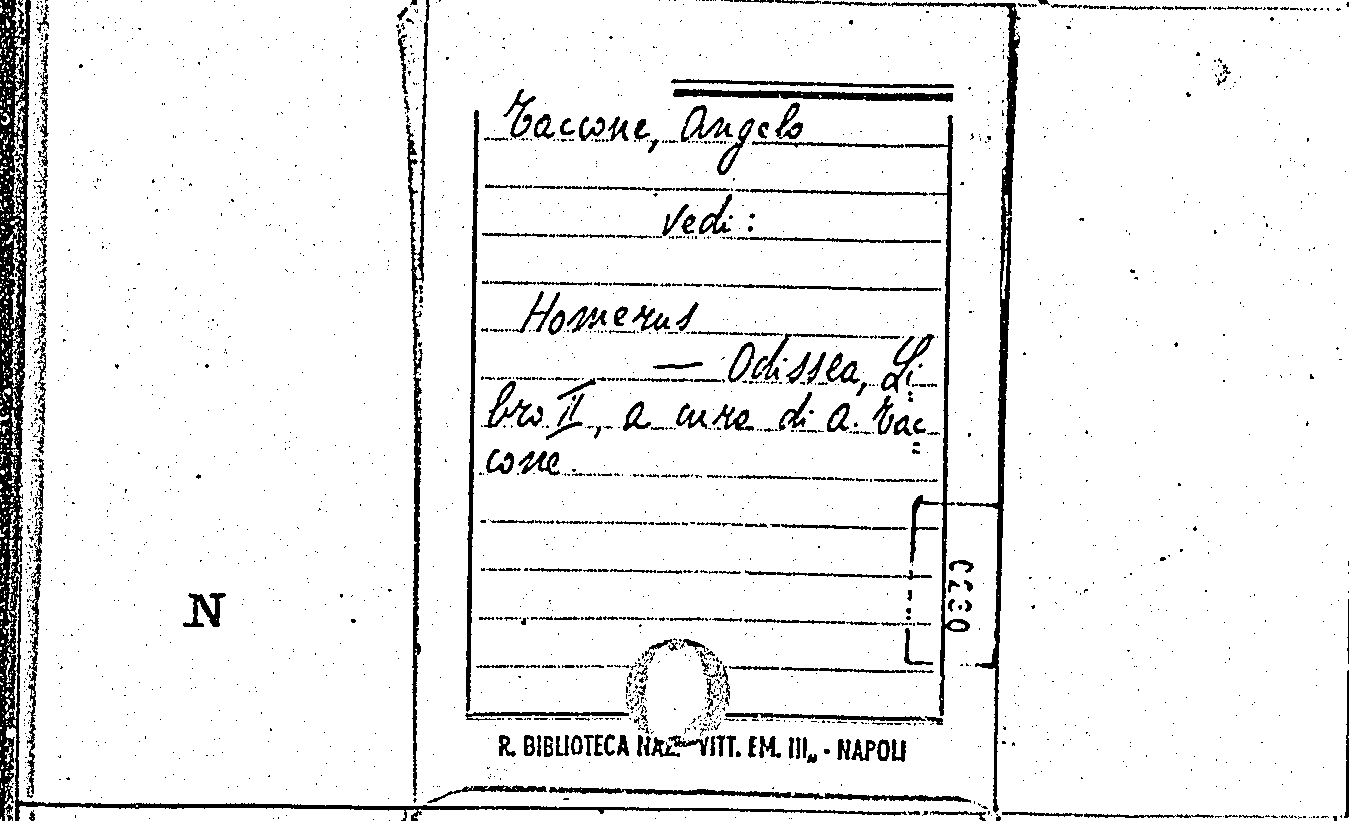 Taccone, Angelo
vedi:
Homerus
— Odissea, Li=
bro II, a cura di A. Tac=
cone.
N
R. BIBLIOTECA NAZ. "VITT. EM. III„ - NAPOLI